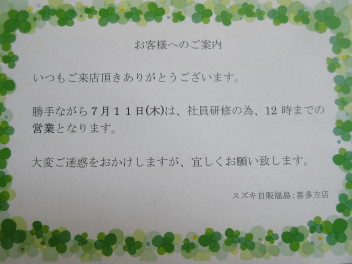 お客様へのご案内
いつもご来店頂きありがとうございます。
勝手ながら７月１１日(木)は、社員研修の為、12 時までの
営業となります。
大変ご迷惑をおかけしますが、宜しくお願い致します。
スズキ自販福島:喜多方店